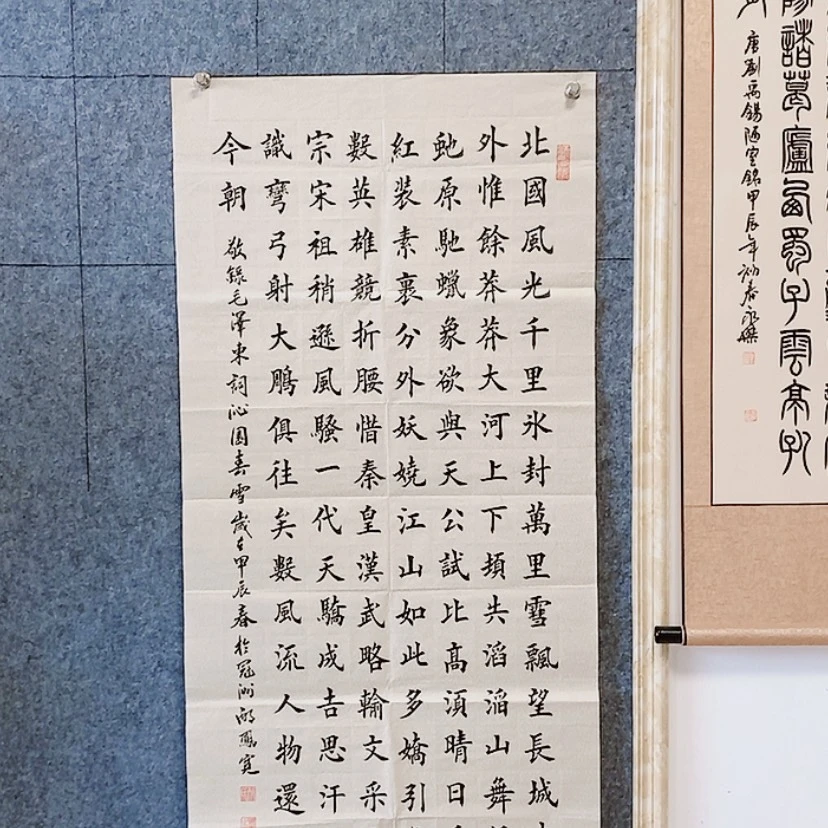 陽諸葛廬西蜀子雲亭孔
唐劉禹錫陋室銘甲辰年初春永
北國風光千里氷封萬里雪飄望長城
外惟餘莽莽大河上下頓失滔滔山舞
虵原馳蠟象欲與天公試比高須晴日
紅装素裹分外妖嬈江山如此多嬌引
數英雄競折腰惜秦皇漢武略輸文采
宗宋祖稍遜風騷一代天驕成吉思汗
識彎弓射大鵰俱往矣數風流人物還
今朝
敬錄毛澤東詞沁園春雪歲在甲辰春於冠洲鳳寬